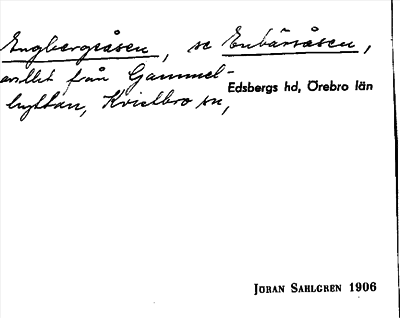 Engbergsåsen, se Enbärsåsen,
avillet från Gammel-
hyttan, Kvistbro sn,
Edsbergs hd, Örebro län
JÖRAN SAHLGREN 1906